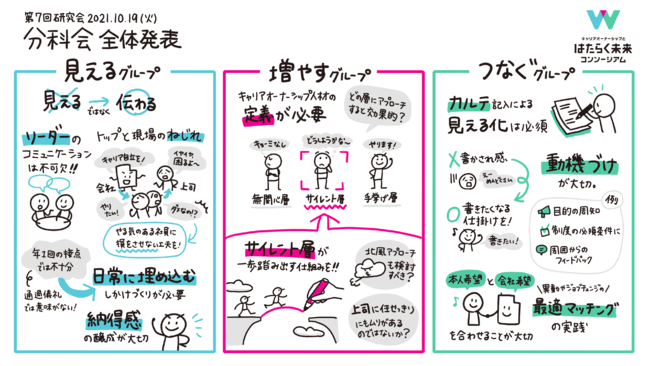 第7回研究会 2021.10.19(火)
分科会 全体発表
キャリアオーナーシップと
はたらく未来
コンソーシアム
見えるグループ
見える ではなく 伝わる
リーダーの
コミュニケーション
は不可欠!!
トップと現場のねじれ
キャリア自立を!
イヤイヤ、
困るよ〜
会社
上司
やり
たい!
ダメなの!?
やる気のあるお尻に
損をさせない工夫を!
年1回の接点
では不十分
通過儀礼
では意味がない!
日常に埋め込む
しかけづくりが必要
納得感
の醸成が大切
増やすグループ
キャリアオーナーシップ人材の
定義が必要
どの層にアプローチ
すると効果的?
キョーミなし
どうしようかな〜
やります!
無関心層
サイレント層
手挙げ層
サイレント層が
一歩踏み出す仕組みを!!
北風アプローチ
も検討
すべき?
上司に任せっきり
にもムリがある
のではないか?
つなぐグループ
カルテ記入による
見える化は必須
X 書かされ感、
えー
めんどくさい
O 書きたくなる
仕掛けを!
書きたい!
動機づけ
が大切。
例
目的の周知
制度の必須条件に
周囲からの
フィードバック
本人希望 と 会社希望
を合わせることが大切
\異動やジョブチェンジ/
最適マッチング
の実践